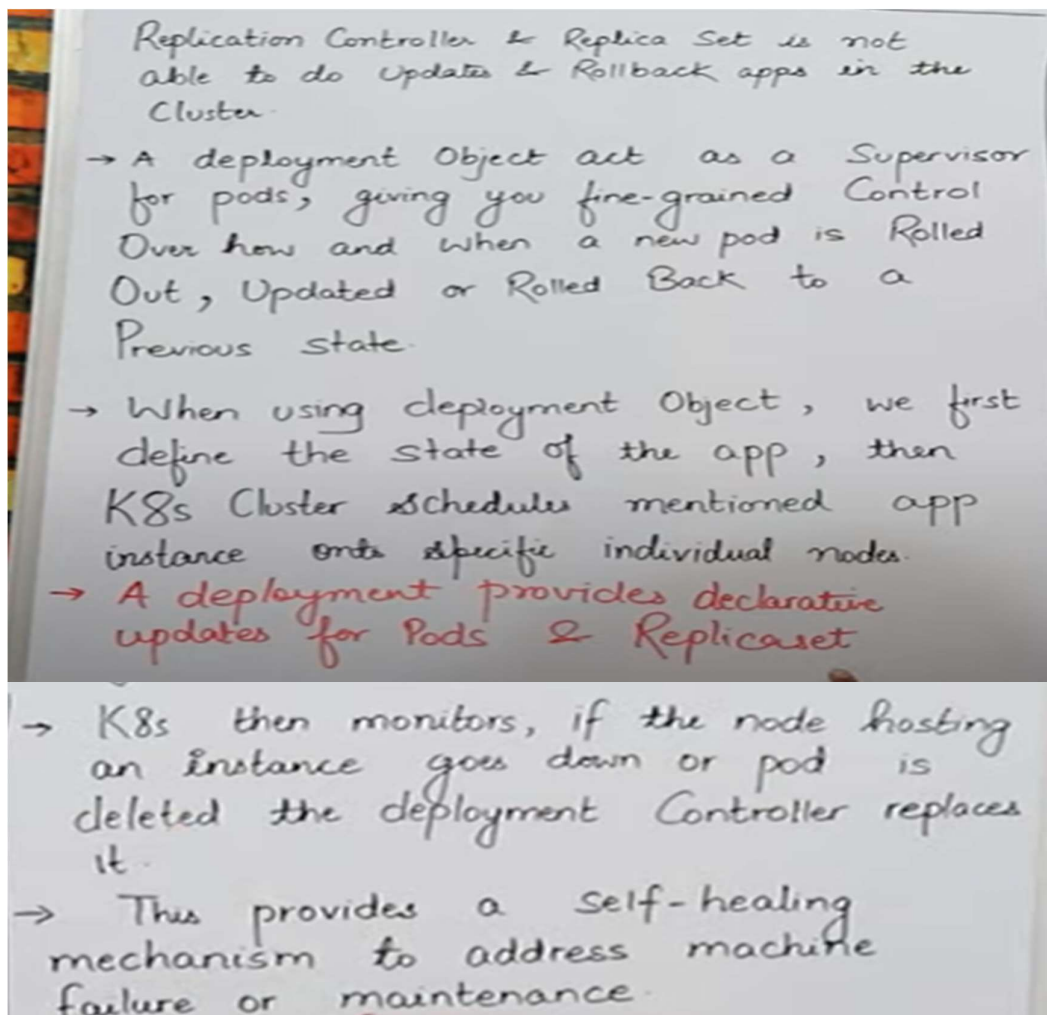 Replication Controller & Replica Set is not
able to do updates & Rollback apps in the
Cluster.
→ A deployment Object act as a Supervisor
for pods, giving you fine-grained Control
Over how and when a new pod is Rolled
Out, Updated or Rolled Back to a
Previous state.
→ When using deployment Object, we first
define the state of the app, then
K8s Cluster schedules mentioned app
instance onto specific individual nodes.
→ A deployment provides declarative
updates for Pods & Replicaset
→ K8s then monitors, if the node hosting
an instance goes down or pod is
deleted the deployment Controller replaces
it.
→ This provides a self-healing
mechanism to address machine
failure or maintenance.